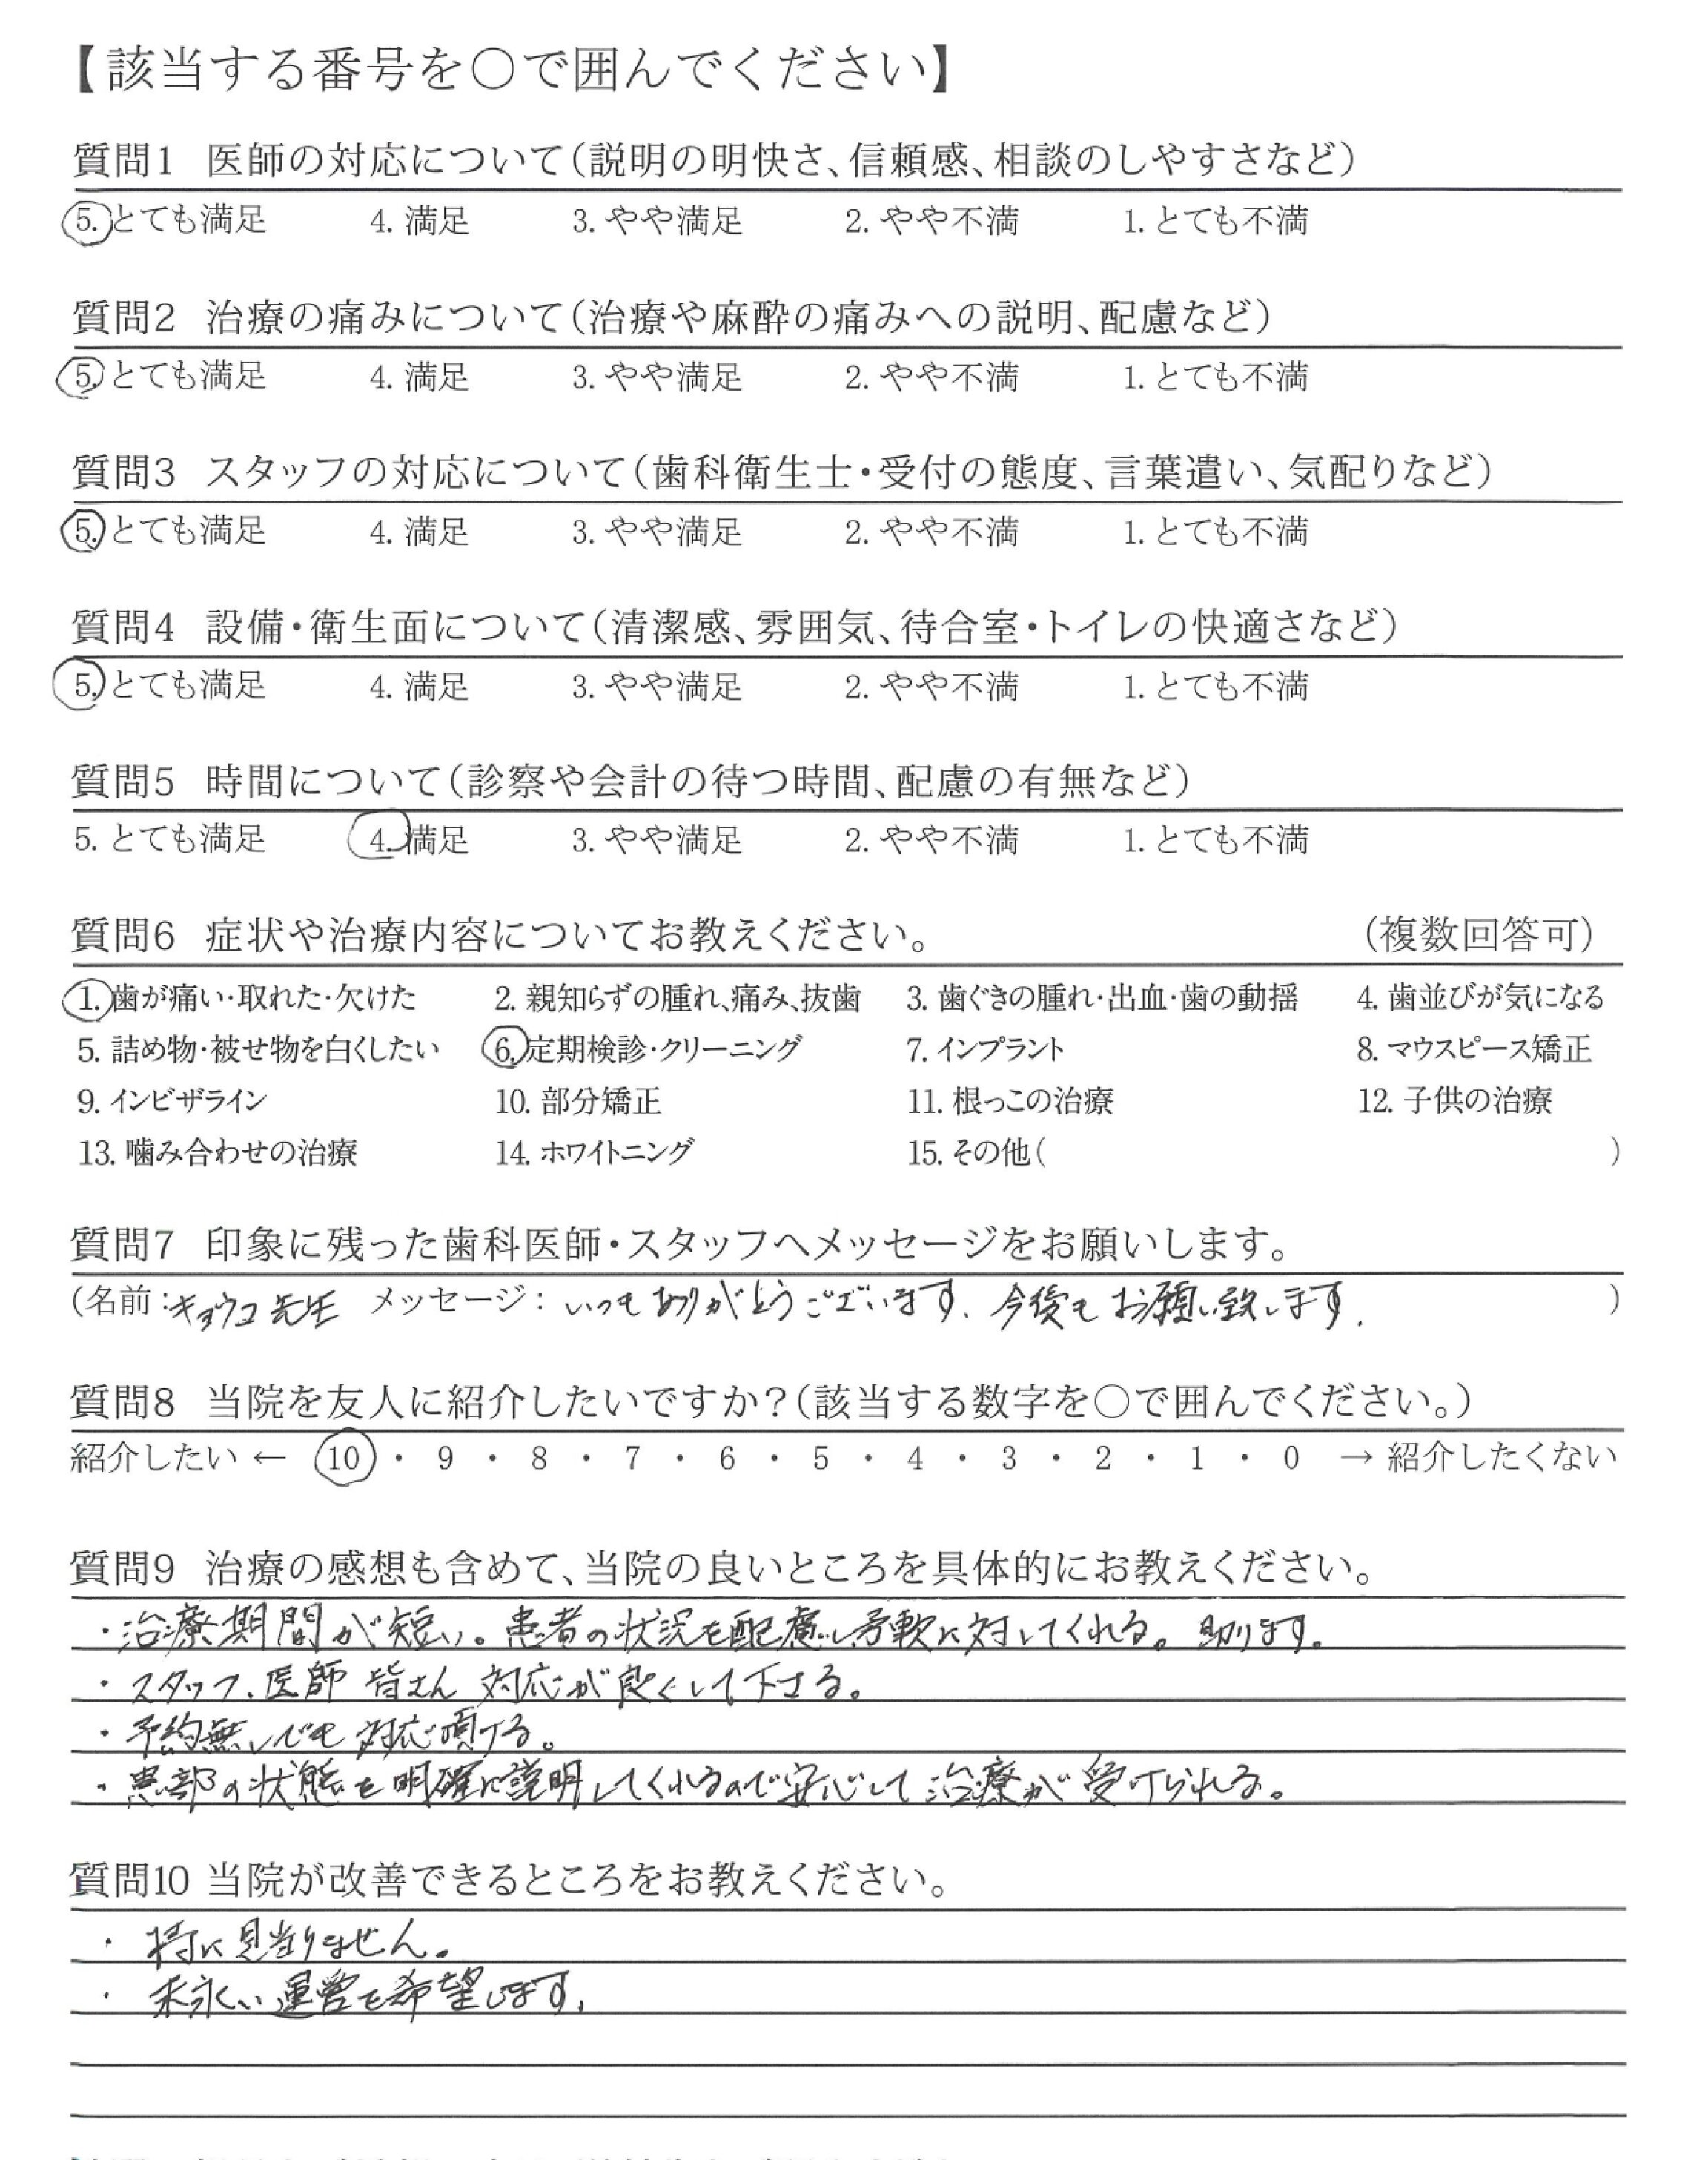 【該当する番号を〇で囲んでください】
質問1 医師の対応について(説明の明快さ、信頼感、相談のしやすさなど)
5. とても満足 4. 満足 3. やや満足 2. やや不満 1. とても不満
質問2 治療の痛みについて(治療や麻酔の痛みへの説明、配慮など)
5. とても満足 4. 満足 3. やや満足 2. やや不満 1. とても不満
質問3 スタッフの対応について(歯科衛生士・受付の態度、言葉遣い、気配りなど)
5. とても満足 4. 満足 3. やや満足 2. やや不満 1. とても不満
質問4 設備・衛生面について(清潔感、雰囲気、待合室・トイレの快適さなど)
5. とても満足 4. 満足 3. やや満足 2. やや不満 1. とても不満
質問5 時間について(診察や会計の待つ時間、配慮の有無など)
5. とても満足 4. 満足 3. やや満足 2. やや不満 1. とても不満
質問6 症状や治療内容についてお教えください。 (複数回答可)
1. 歯が痛い・取れた・欠けた 2. 親知らずの腫れ、痛み、抜歯 3. 歯ぐきの腫れ・出血・歯の動揺 4. 歯並びが気になる
5. 詰め物・被せ物を白くしたい 6. 定期検診・クリーニング 7. インプラント 8. マウスピース矯正
9. インビザライン 10. 部分矯正 11. 根っこの治療 12. 子供の治療
13. 噛み合わせの治療 14. ホワイトニング 15. その他( )
質問7 印象に残った歯科医師・スタッフへメッセージをお願いします。
(名前:キョウコ先生 メッセージ: いつもありがとうございます. 今後もお願い致します. )
質問8 当院を友人に紹介したいですか?(該当する数字を〇で囲んでください。)
紹介したい ← 10 ・ 9 ・ 8 ・ 7 ・ 6 ・ 5 ・ 4 ・ 3 ・ 2 ・ 1 ・ 0 → 紹介したくない
質問9 治療の感想も含めて、当院の良いところを具体的にお教えください。
・治療期間が短い。患者の状況を配慮し柔軟に対してくれる。助ります。
・スタッフ、医師 皆さん 対応が良くして下さる。
・予約無しでも対応頂ける。
・患部の状態を明確に説明してくれるので安心して治療が受けられる。
質問10 当院が改善できるところをお教えください。
・ 特に見当りません。
・ 末永い運営を希望します.